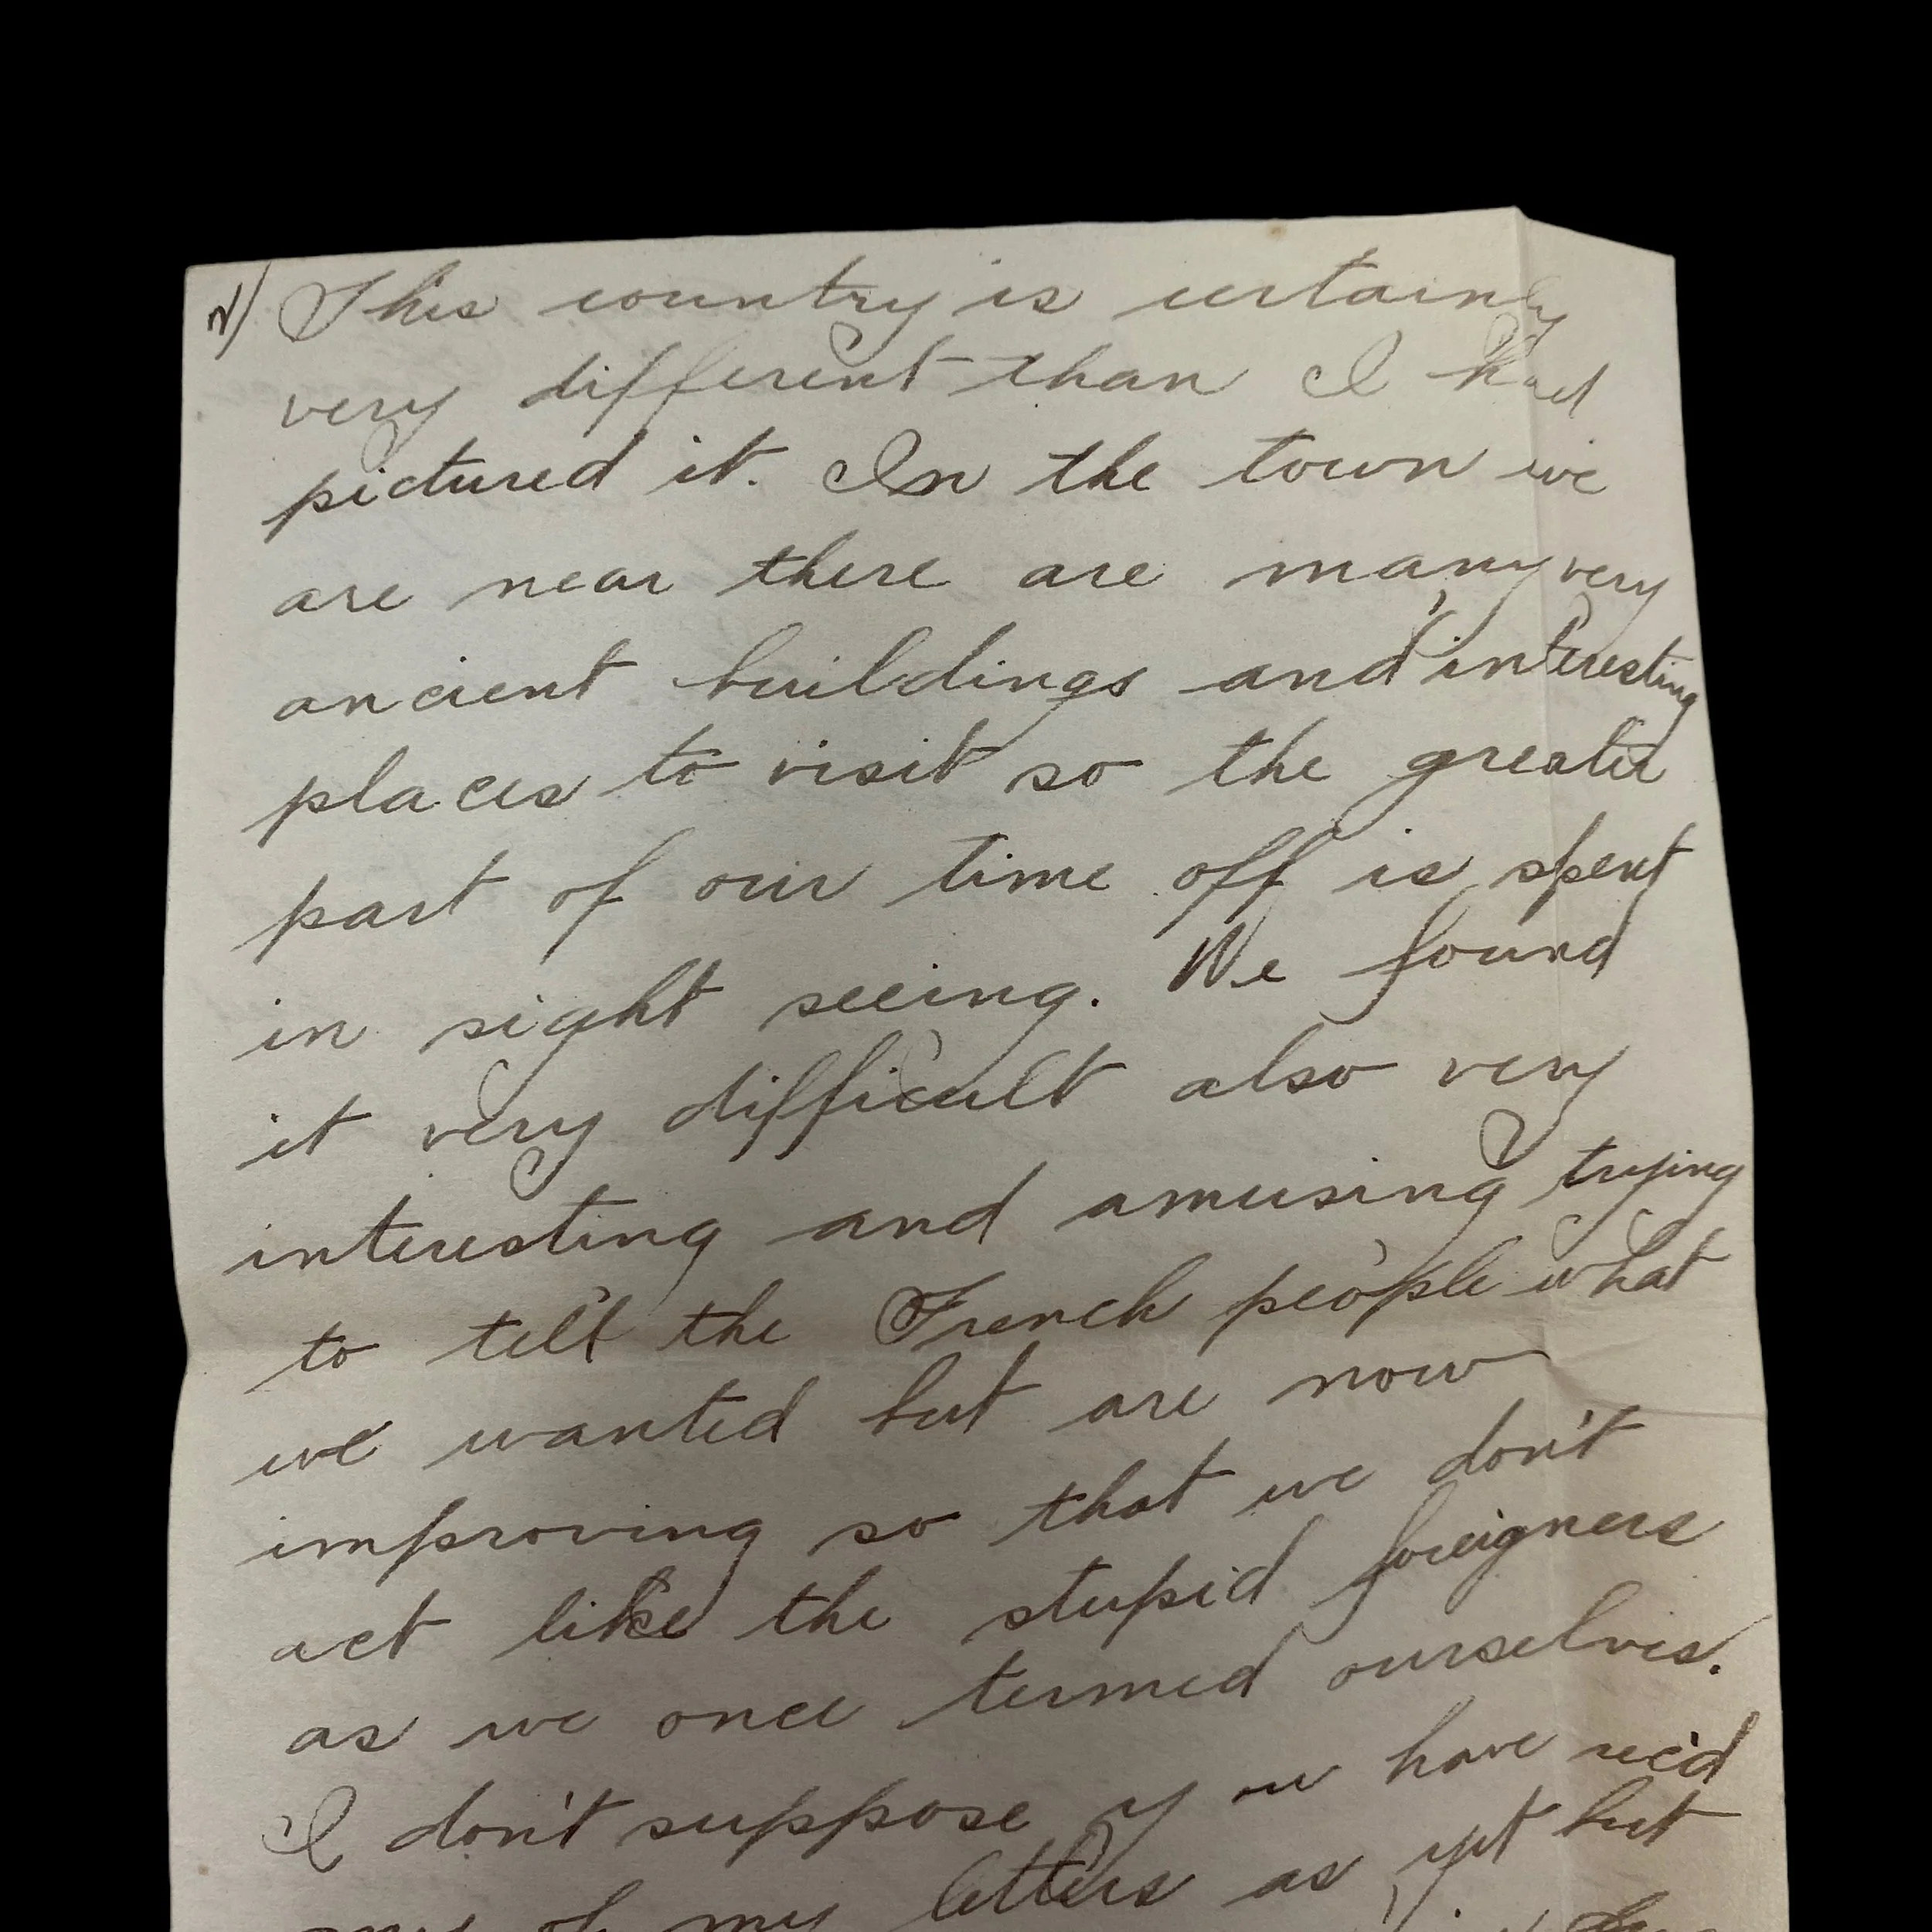 2) This country is certainly
very different than I had
pictured it. In the town we
are near there are many very
ancient buildings and interesting
places to visit so the greater
part of our time off is spent
in sight seeing. We found
it very difficult also very
interesting and amusing trying
to tell the French people what
we wanted but are now
improving so that we don't
act like the stupid foreigners
as we once termed ourselves.
I don't suppose you have rec'd
any of my letters as yet but